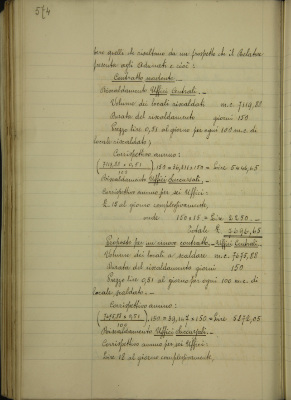 574
bero quelle che risultano da un prospetto che il Relatore
presenta agli Adunati e cioè:
Contratto scadente.
Riscaldamento Uffici Centrali.
Volume dei locali riscaldati m.c.
Durata del riscaldamento giorni 150
Prezzo lire 0,51 al giorno per ogni 100 m.c. di
locale riscaldato;
Corrispettivo annuo:
Riscaldamento Uffici Succursali.
Corrispettivo annuo per sei Uffici:
L. 15 al giorno complessivamente,
onde 150 x 15 = Lire 2250.—
Totale L.
Proposta per un nuovo contratto - Uffici Centrali.
Volume dei locali a scaldare m.c.
Durata del riscaldamento giorni 150
Prezzo lire 0,51 al giorno per ogni 100 m.c. di
locale scaldato.
Corrispettivo annuo:
Riscaldamento Uffici Succursali.
Corrispettivo annuo per sei Uffici:
Lire 15 al giorno complessivamente,